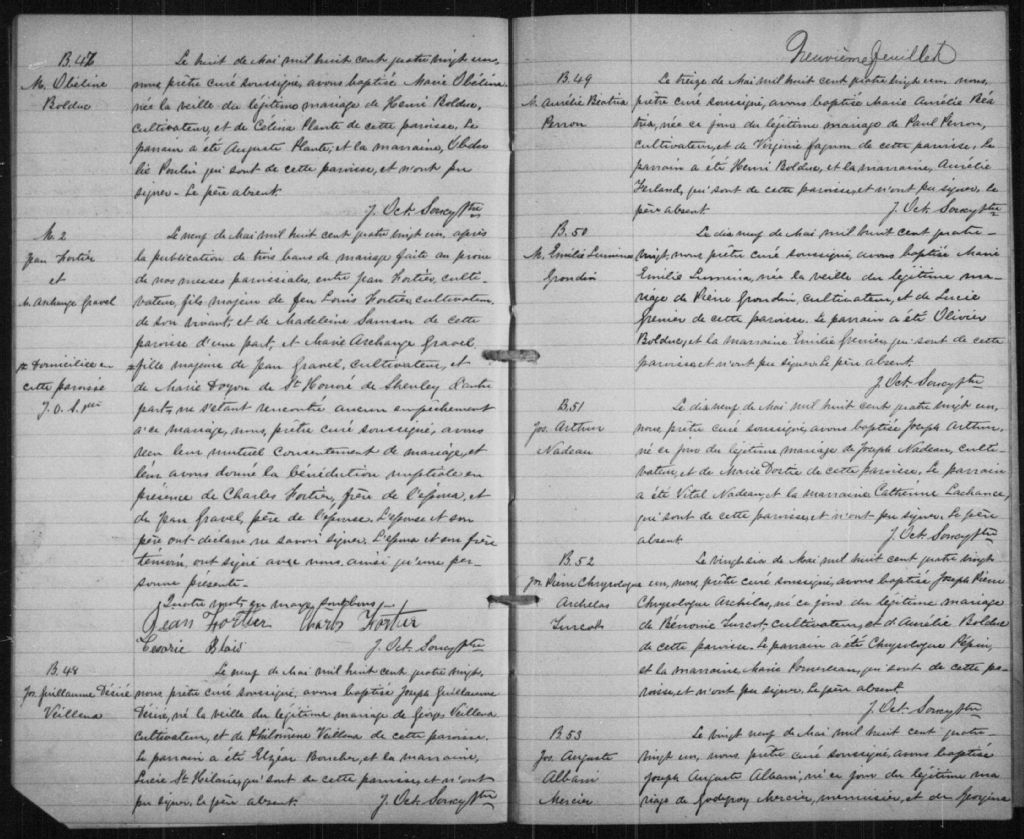 B.47
M. Obéline
Bolduc
Le huit de Mai mil huit cent quatre vingt un,
nous, prêtre curé soussigné, avons baptisé Marie Obélina
née la veille du légitime mariage de Henri Bolduc,
cultivateur, et de Célina Plante de cette paroisse. Le
parrain a été Auguste Plante, et la marraine,
Poulin qui sont de cette paroisse, et n'ont pu
signer. Le père absent.
J. Oct. Soucy Ptre
M. 2
Jean Fortier
et
M. Archange Gravel
≠ domiciliée en
cette paroisse
J. O. S. ptre
Le neuf de Mai mil huit cent quatre vingt un, après
la publication de trois bans de mariage faite au prone
de nos messes paroissiales, entre Jean Fortier, culti-
vateur, fils majeur de feu Louis Fortier, cultivateur
de son vivant, et de Madeleine Samson de cette
paroisse d'une part, et Marie Archange Gravel
≠ fille majeure de Jean Gravel, cultivateur, et
de Marie Doyon de St Honoré de Shenley d'autre
part, ne s'étant rencontré aucun empêchement
à ce mariage, nous, prêtre curé soussigné, avons
reçu leur mutuel consentement de mariage, et
leur avons donné la bénédiction nuptiale en
présence de Charles Fortier, frère de l'époux, et
du Jean Gravel, père de l'épouse. L'épouse et son
père ont déclaré ne savoir signer. L'époux et son frère
témoin, ont signé avec nous, ainsi qu'une per-
sonne présente.
Quatre mots en marge sont bons
Jean Fortier Charles Fortier
Blais J. Oct. Soucy Ptre
B.48
Jos. Guillaume Désiré
Veilleux
Le neuf de Mai mil huit cent quatre vingt,
nous prêtre curé soussigné, avons baptisé Joseph Guillaume
Désiré, né la veille du légitime mariage de Georges Veilleux
cultivateur, et de Philomène Veilleux de cette paroisse.
Le parrain a été Elzéar Boucher, et la marraine,
Lucie St Hilaire, qui sont de cette paroisse, et n'ont
pu signer. Le père absent. J. Oct. Soucy Ptre
Neuvième feuillet
B.49
M. Aurélie Béatrix
Perron
Le treize de Mai mil huit cent quatre vingt un, nous,
prêtre curé soussigné, avons baptisé Marie Aurélie Béa
trix, née ce jour du légitime mariage de Paul Perron,
cultivateur, et de Virginie Fagnon de cette paroisse. Le
parrain a été Henri Bolduc, et la marraine, Aurélie
Ferland, qui sont de cette paroisse, et n'ont pu signer, le
père absent. J. Oct. Soucy Ptre
B.50
M. Emélie Lumina
Grondin
Le dix neuf de Mai mil huit cent quatre-
vingt, nous prêtre curé soussigné, avons baptisé Marie
Emélie Lumina, née la veille du légitime ma-
riage de Pierre Grondin, cultivateur, et de Lucie
Grenier de cette paroisse. Le parrain a été Olivier
Bolduc, et la marraine Emélie Grenier, qui sont de cette
paroisse, et n'ont pu signer. Le père absent.
J. Oct. Soucy Ptre
B.51
Jos. Arthur
Nadeau
Le dix neuf de Mai mil huit cent quatre vingt un,
nous, prêtre curé soussigné, avons baptisé Joseph Arthur,
né ce jour du légitime mariage de Joseph Nadeau, culti-
vateur, et de Marie Fortin de cette paroisse. Le parrain
a été Vital Nadeau, et la marraine Catherine Lachance,
qui sont de cette paroisse, et n'ont pu signer. Le père
absent. J. Oct. Soucy Ptre
B.52
Jos. Pierre Chrysologue
Archélas
Turcot
Le vingt six de Mai mil huit cent quatre vingt
un, nous, prêtre curé soussigné, avons baptisé Joseph Pierre
Chrysologue Archélas, né ce jour du légitime mariage
de Bénonie Turcot, cultivateur, et d'Aurélie Bolduc
de cette paroisse. Le parrain a été Chrysologue Pépin,
et la marraine Marie Pomerleau, qui sont de cette pa-
roisse, et n'ont pu signer. Le père absent.
J. Oct. Soucy Ptre
B.53
Jos. Auguste
Albani
Mercier
Le vingt neuf de Mai mil huit cent quatre-
vingt un, nous, prêtre curé soussigné, avons baptisé
Joseph Auguste Albani, né ce jour du légitime ma-
riage de Godefroy Mercier, menuisier, et de Georgina